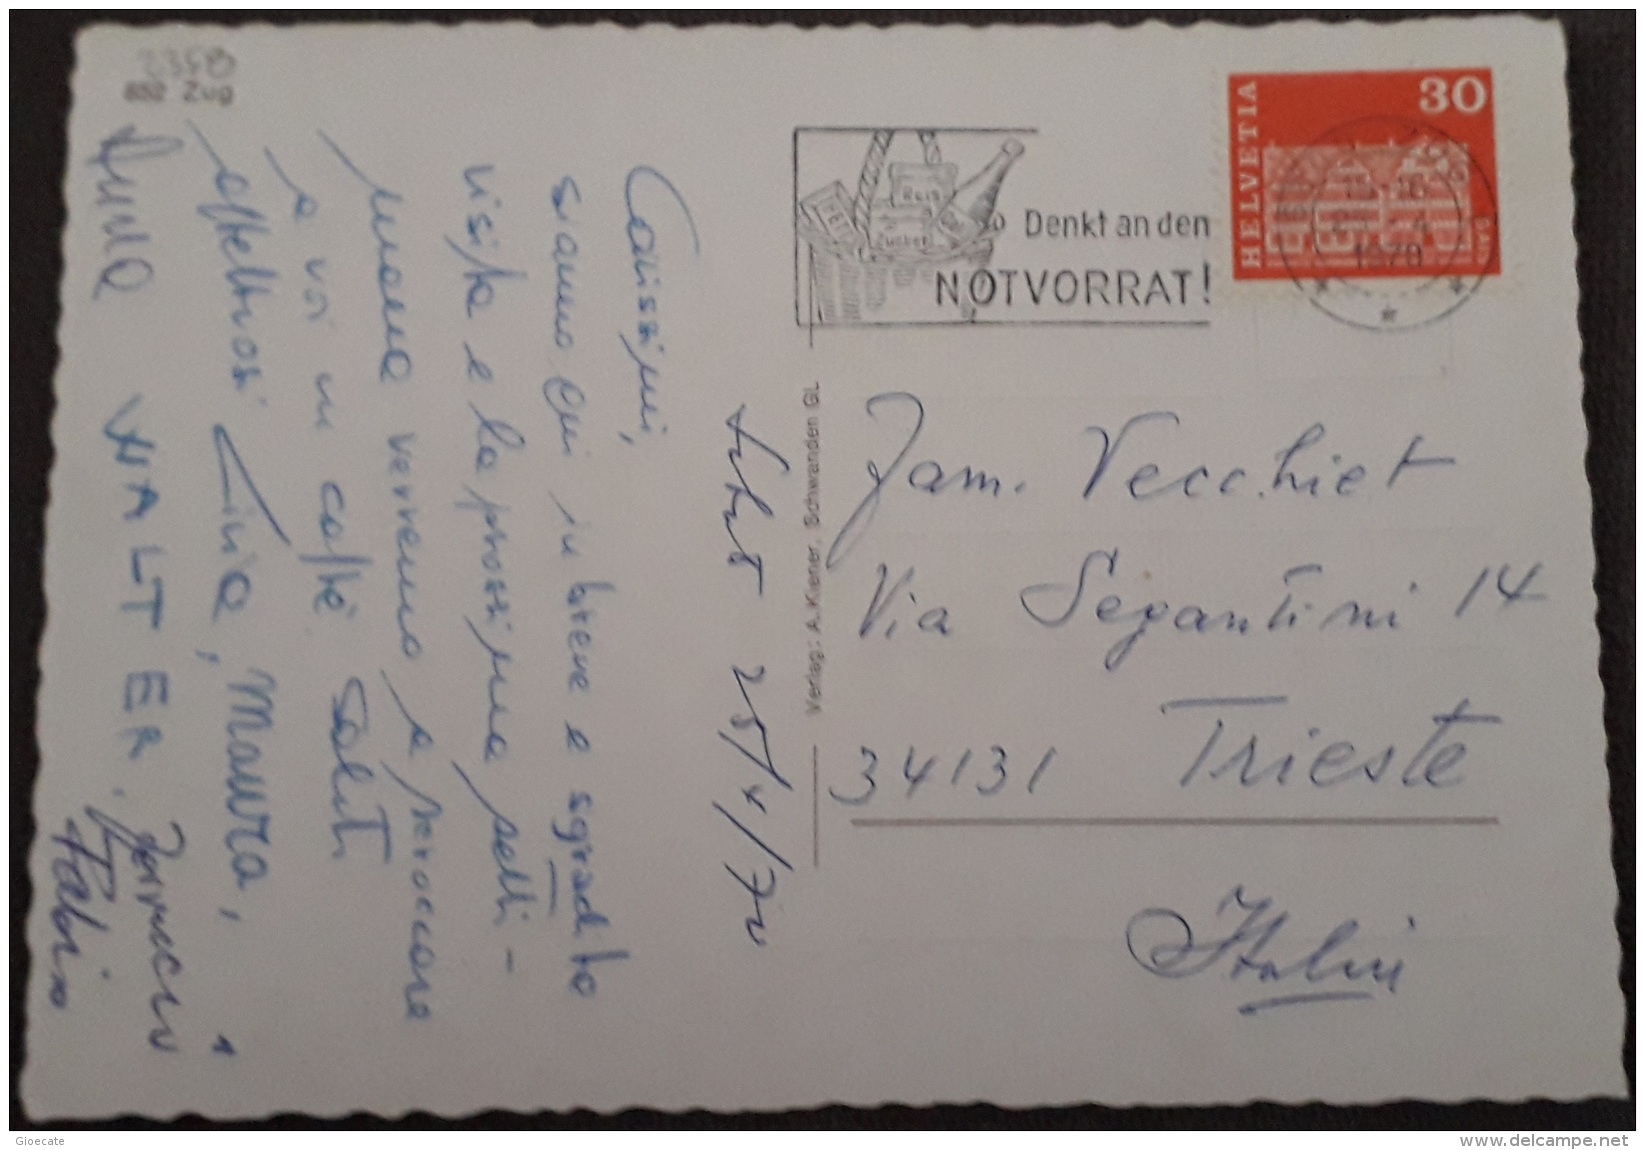 652 Zug
HELVETIA
30
Reis
Zucker
FETT
Denkt an den
NOTVORRAT!
1970
Verlag: A. Kiener, Schwanden GL
25/4/70
Carissimi,
siamo qui in breve e sgradita
visita e la prossima setti-
mana verremo a scroccare
a voi un caffè. Saluti
affettuosi Livia, Maura,
WALTER, Ferruccio
Fabio
Fam. Vecchiet
Via Segantini 14
34131 Trieste
Italia
Gioecate
www.delcampe.net